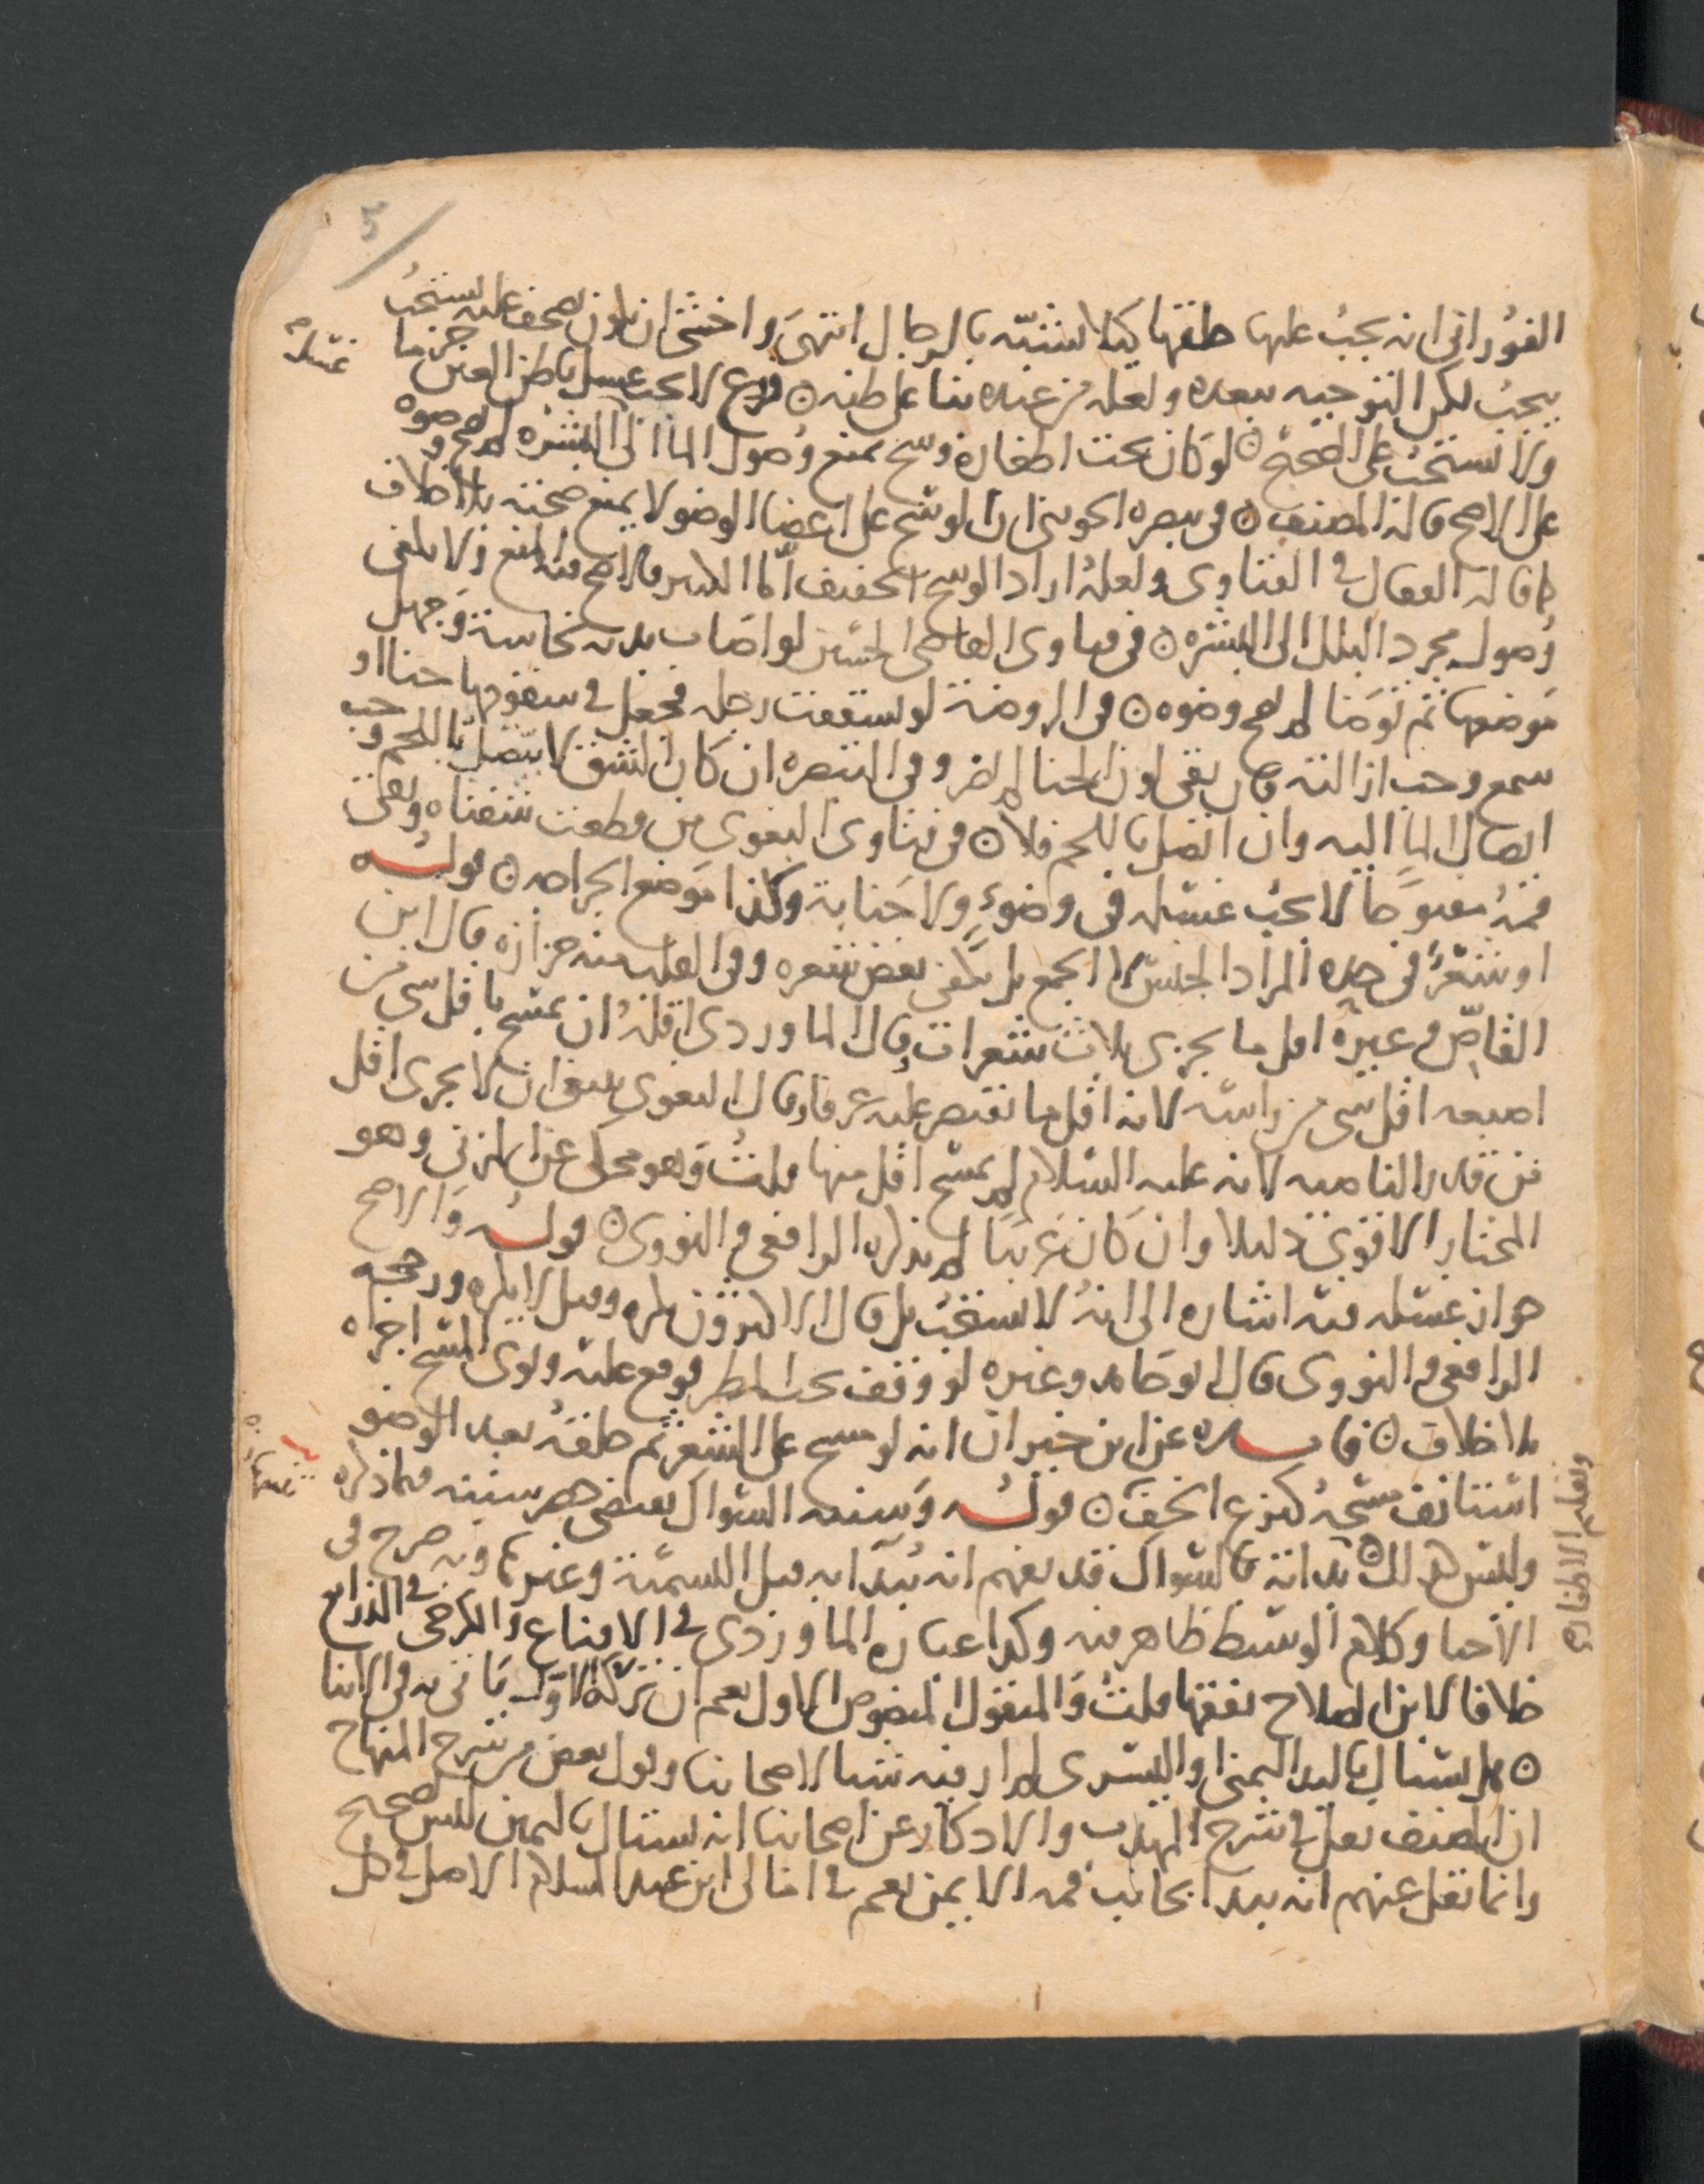 5
الفوراني انه يجب عليها حلقها كيلا يتشبه بالرجال انتهى واخشى ان يكون تصحف عليه يستحب
يجب لكن التوجيه يبعده ولعله من عنده بنا على ظنه ۞ فرع لا يجب غسل باطن العين جزما
ولا يستحب على الصحيح ۞ لو كان تحت اظفاره وسخ يمنع وصول الما الى البشره لم يصح وضوه
غسله
على الاصح قاله المصنف ۞ في تبصره الجويني ان الوسخ على اعضا الوضو لا يمنع صحته بلا خلاف
كما قاله القفال في الفتاوى ولعله اراد الوسخ الخفيف اما الكثير فالاصح فيه المنع ولا يكفي
وصول مجرد البلل الى البشره ۞ في فتاوى القاضي الحسين لو اصاب بدنه نجاسة وجهل
موضعها ثم توضا لم يصح وضوه ۞ في الروضة لو تشققت رجله فجعل في شقوقها حنا او
شمع وجب ازالته فان بقي لون الحنا لم يضر وفي التبصره ان كان الشق لا يتصل باللحم وجب
ايصال الما اليه وان اتصل باللحم فلا ۞ في فتاوى البغوي من قطعت شفتاه وبقي
فمه مفتوحا لا يجب غسله في وضوء ولا جنابة وكذا موضع الجراحه ۞ قوله
او شعر في حده المراد الجنس لا الجمع بل يكفي بعض شعره وفي القلب منه حزازه قال ابن
القاص وغيره اقل ما يجزي ثلاث شعرات وقال الماوردي اقله ان يمسح باقل شي من
اصبعه اقل شي من راسه لانه اقل ما يقتصر عليه عرفا وقال البغوي ينبغي ان لا يجزي اقل
من قدر الناصيه لانه عليه السلام لم يمسح اقل منها قلت وهو محكي عن المزني وهو
المختار الاقوى دليلا وان كان غريبا لم يذكره الرافعي والنووي ۞ قوله والاصح
جواز غسله فيه اشاره الى انه لا يستحب بل قال الاكثرون يكره وقيل لا يكره ورجحه
الرافعي والنووي قال ابو حامد وغيره لو وقف تحت المطر فوقع عليه ونوى المسح اجزاه
بلا خلاف ۞ فايده عن ابن خيران انه لو مسح على الشعر ثم حلقه بعد الوضو
استانف مسحه كنزع الخف ۞ قوله وسننه السواك يقتضي حصر سننه فيما ذكره
وليس كذلك ۞ بدأته بالسواك قد يفهم انه يبدا به قبل التسمية وغيرها وبه صرح في
وتقليم الاظفاره
الاحيا وكلام الوسيط ظاهر فيه وكذا عباره الماوردي في الاقناع والكرخي في الذرايع
خلافا لابن الصلاح تفقها قلت والمنقول المنصوص الاول نعم ان تركه الاول ياتي به في الاثنا
۞ هل يستاك باليد اليمنى او اليسرى لم ار فيه شيا لاصحابنا وقول بعض من شرح المنهاج
ان المصنف نقل في شرح المهذب والاذكار عن اصحابنا انه يستاك باليمين ليس صحيح
وانما نقل عنهم انه يبدا بجانب فمه الايمن نعم في امالي ابن عبد السلام الاصل في كل